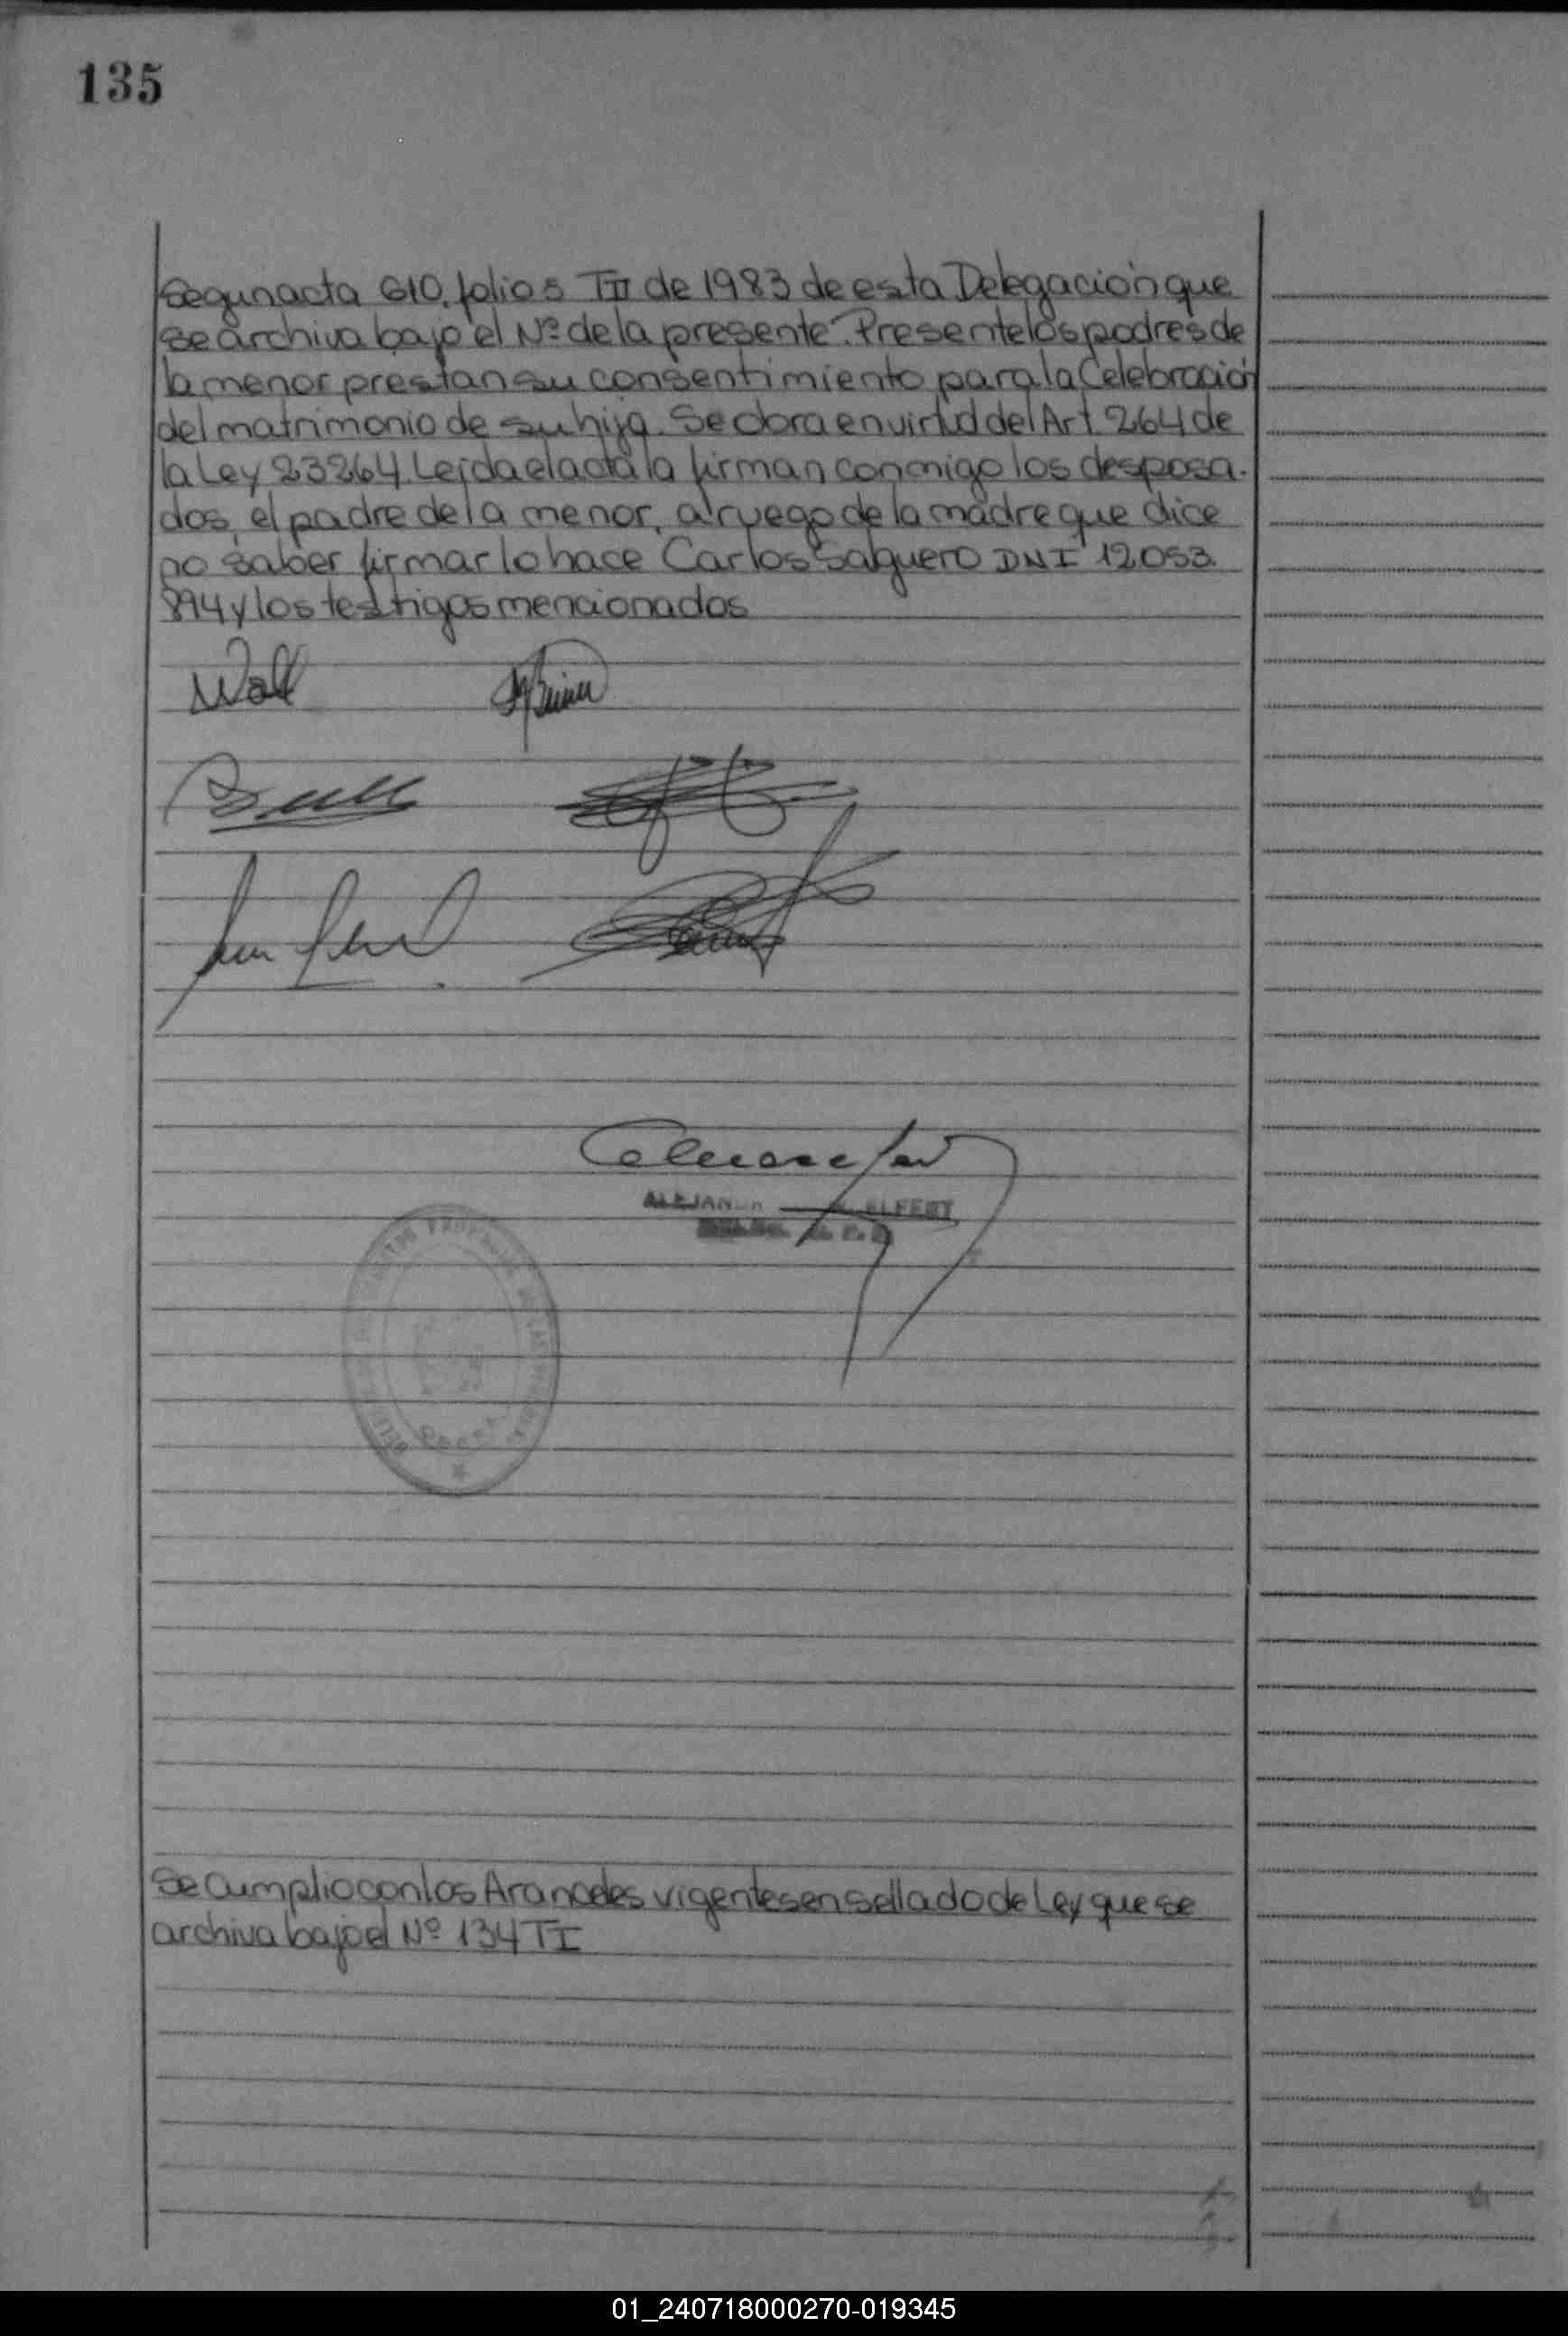 135
Segun acta 610, folio 5 TII de 1983 de esta Delegación que
se archiva bajo el Nº de la presente. Presente los padres de
la menor prestan su consentimiento para la Celebración
del matrimonio de su hija. Se obra en virtud del Art. 264 de
la Ley 23264. Leida el acta la firman conmigo los desposa-
dos, el padre de la menor, a ruego de la madre que dice
no saber firmar lo hace Carlos Salguero DNI 12.053.
894 y los testigos mencionados
Se Cumplio con los Aranceles vigentes en sellado de Ley que se
archiva bajo el Nº 134 TI
01_240718000270-019345